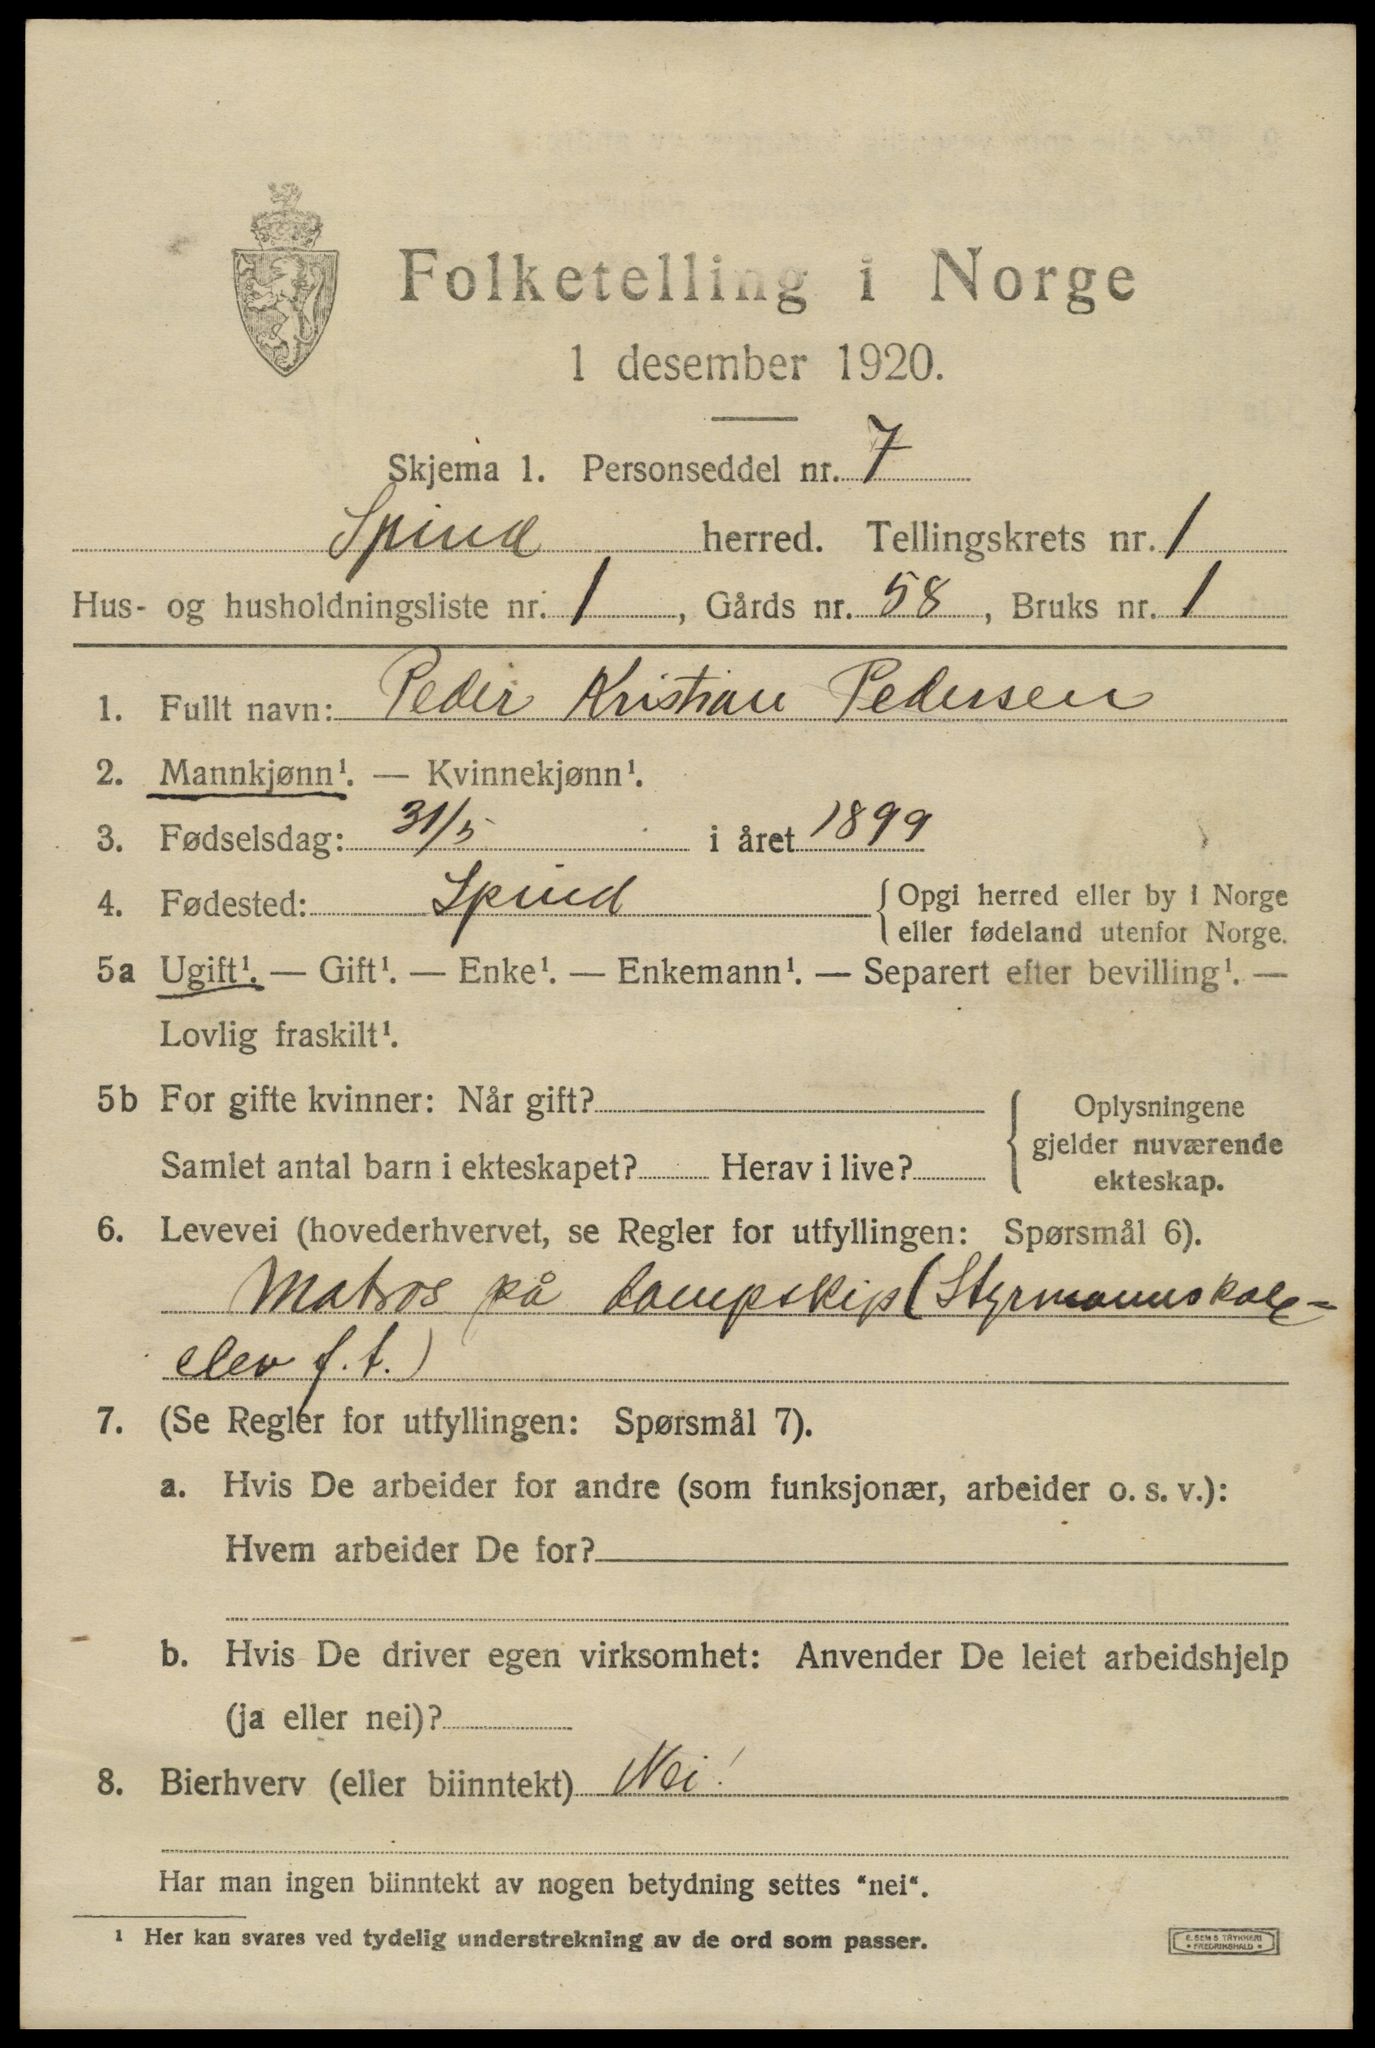 Folketelling i Norge
1 desember 1920.
Skjema 1. Personseddel nr. 7
Spind herred. Tellingskrets nr. 1
Hus- og husholdningsliste nr. 1, Gårds nr. 58, Bruks nr. 1
1. Fullt navn: Peder Kristian Pedersen
2. Mannkjønn¹. — Kvinnekjønn¹.
3. Fødselsdag: 31/5 i året 1899
4. Fødested: Spind {Opgi herred eller by i Norge
eller fødeland utenfor Norge.
5a Ugift¹. — Gift¹. — Enke¹. — Enkemann¹. — Separert efter bevilling¹. —
Lovlig fraskilt¹.
5b For gifte kvinner: Når gift? { Oplysningene
gjelder nuværende
Samlet antal barn i ekteskapet? Herav i live?
ekteskap.
6. Levevei (hovederhvervet, se Regler for utfyllingen: Spørsmål 6).
Matros på dampskip (Styrmannskole-
elev f.t.)
7. (Se Regler for utfyllingen: Spørsmål 7).
a. Hvis De arbeider for andre (som funksjonær, arbeider o. s. v.):
Hvem arbeider De for?
b. Hvis De driver egen virksomhet: Anvender De leiet arbeidshjelp
(ja eller nei)?
8. Bierhverv (eller biinntekt) Nei!
Har man ingen biinntekt av nogen betydning settes "nei".
¹ Her kan svares ved tydelig understrekning av de ord som passer.
E. SEMS TRYKKERI
• FREDRIKSHALD •